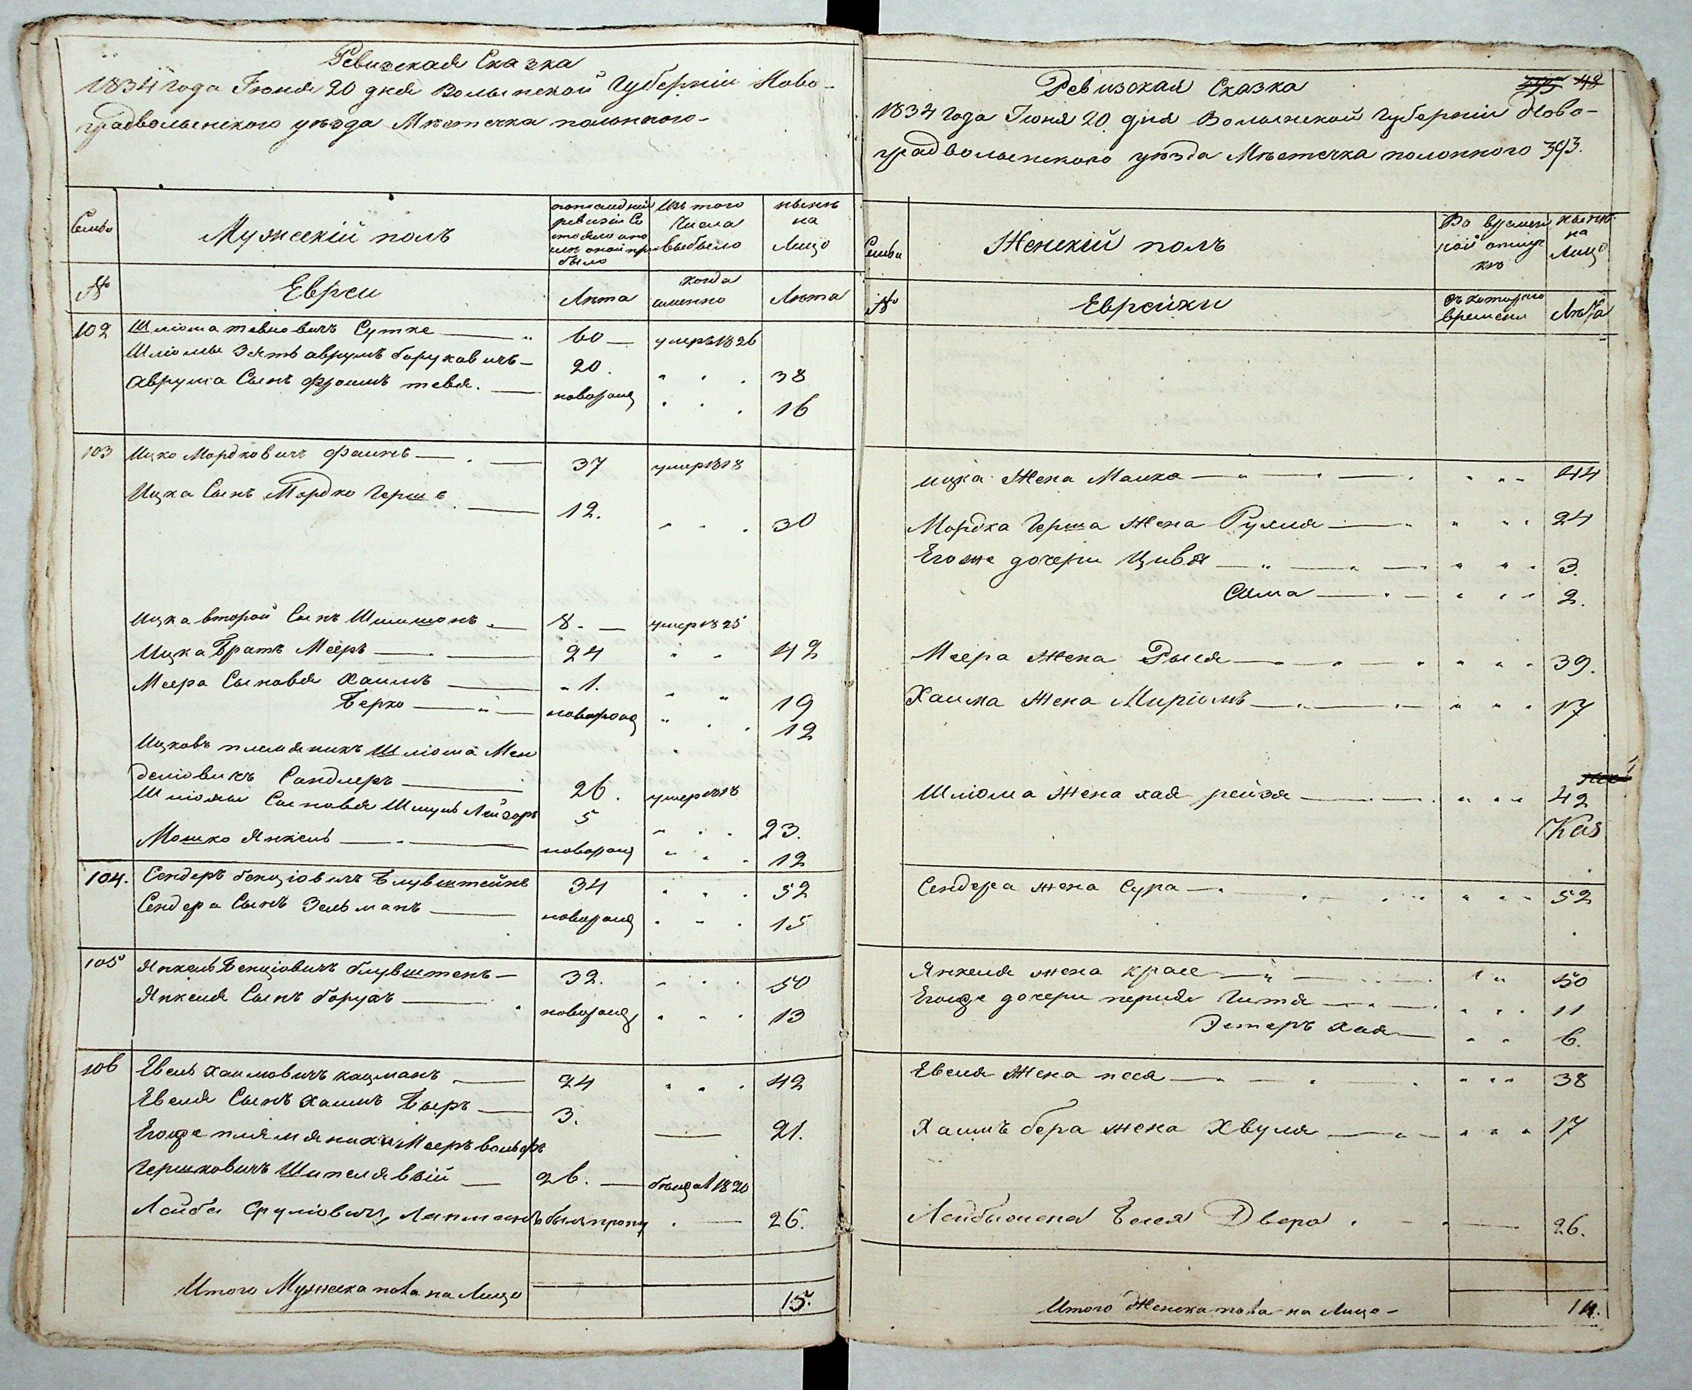 Ревизская Сказка
1834 года Іюня 20 дня Волынской Губерніи Ново-
градволынского уѣзда Мѣстечка полонного
Семьи
Мужескій полъ
последней ревизіи Состояло или после оной прибыло
Изъ того Числа выбыло
нынѣ на Лицо
№
Евреи
Лѣта
когда именно
Лѣта
102 Шліома тевіовичъ Сутке 60 умеръ 1826
Шліомы Зять аврумъ боруховичъ 20. 38
Аврума Сынъ фроимъ тевя. новорожд 16
103 Ицко Мордковичъ фаинъ 37 умеръ 1818
Ицка Сынъ Мордко Герша 12. 30
Ицка второй Сынъ Шимшонъ 8. умеръ 1825
Ицка Братъ Мееръ 24 42
Меера Сыновья Хаимъ 1. 19
Берко новорожд 12
Ицковъ племяникъ Шліома Мен
деліовичъ Сандлеръ 26. умеръ 1818
Шліомы Сыновья Шмуль Лейзоръ 5 23.
Мошко Янкель новорожд 12
104. Сендеръ бенціовичъ Блувштейнъ 34 52
Сендера Сынъ Зельманъ новорожд 15
105 Янкель Бенціовичъ блувштенъ 32. 50
Янкеля Сынъ борухъ новорожд 13
106 Евель Хаимовичъ кацманъ 24 42
Евеля Сынъ Хаимъ Беръ 3. 21.
Егоже племяникъ Мееръ вольфъ
Гершковичъ Шепелявый 26. бежалъ 1820
Лейба Сруліовичъ Липманъ былъ проп 26.
Итого Мужеска пола на Лицо 15.
Ревизская Сказка 48
1834 года Іюня 20 дня Волынской Губерніи Ново-
градволынского уѣзда Мѣстечка полонного 393.
Семьи
Женскій полъ
Во временной отлучкѣ
нынѣ на Лицо
№
Еврейки
Съ которого времени
Лѣта
ицка Жена Малка 44
Мордка Герша Жена Рухля 24
Егоже дочери Цивья 3.
Сима 2.
Меера Жена Рыся 39.
Хаима Жена Миріомъ 17
Шліома Жена хая рейзя 42
Сендера жена Сура 52
Янкеля жена красе 50
Егоже дочери перля Гитля 11
Эстеръ хая 6.
Евеля Жена песя 38
Хаимъ бера жена Хвуля 17
Лейбы жена Бейля Двера 26.
Итого Женска пола на Лицо 14.